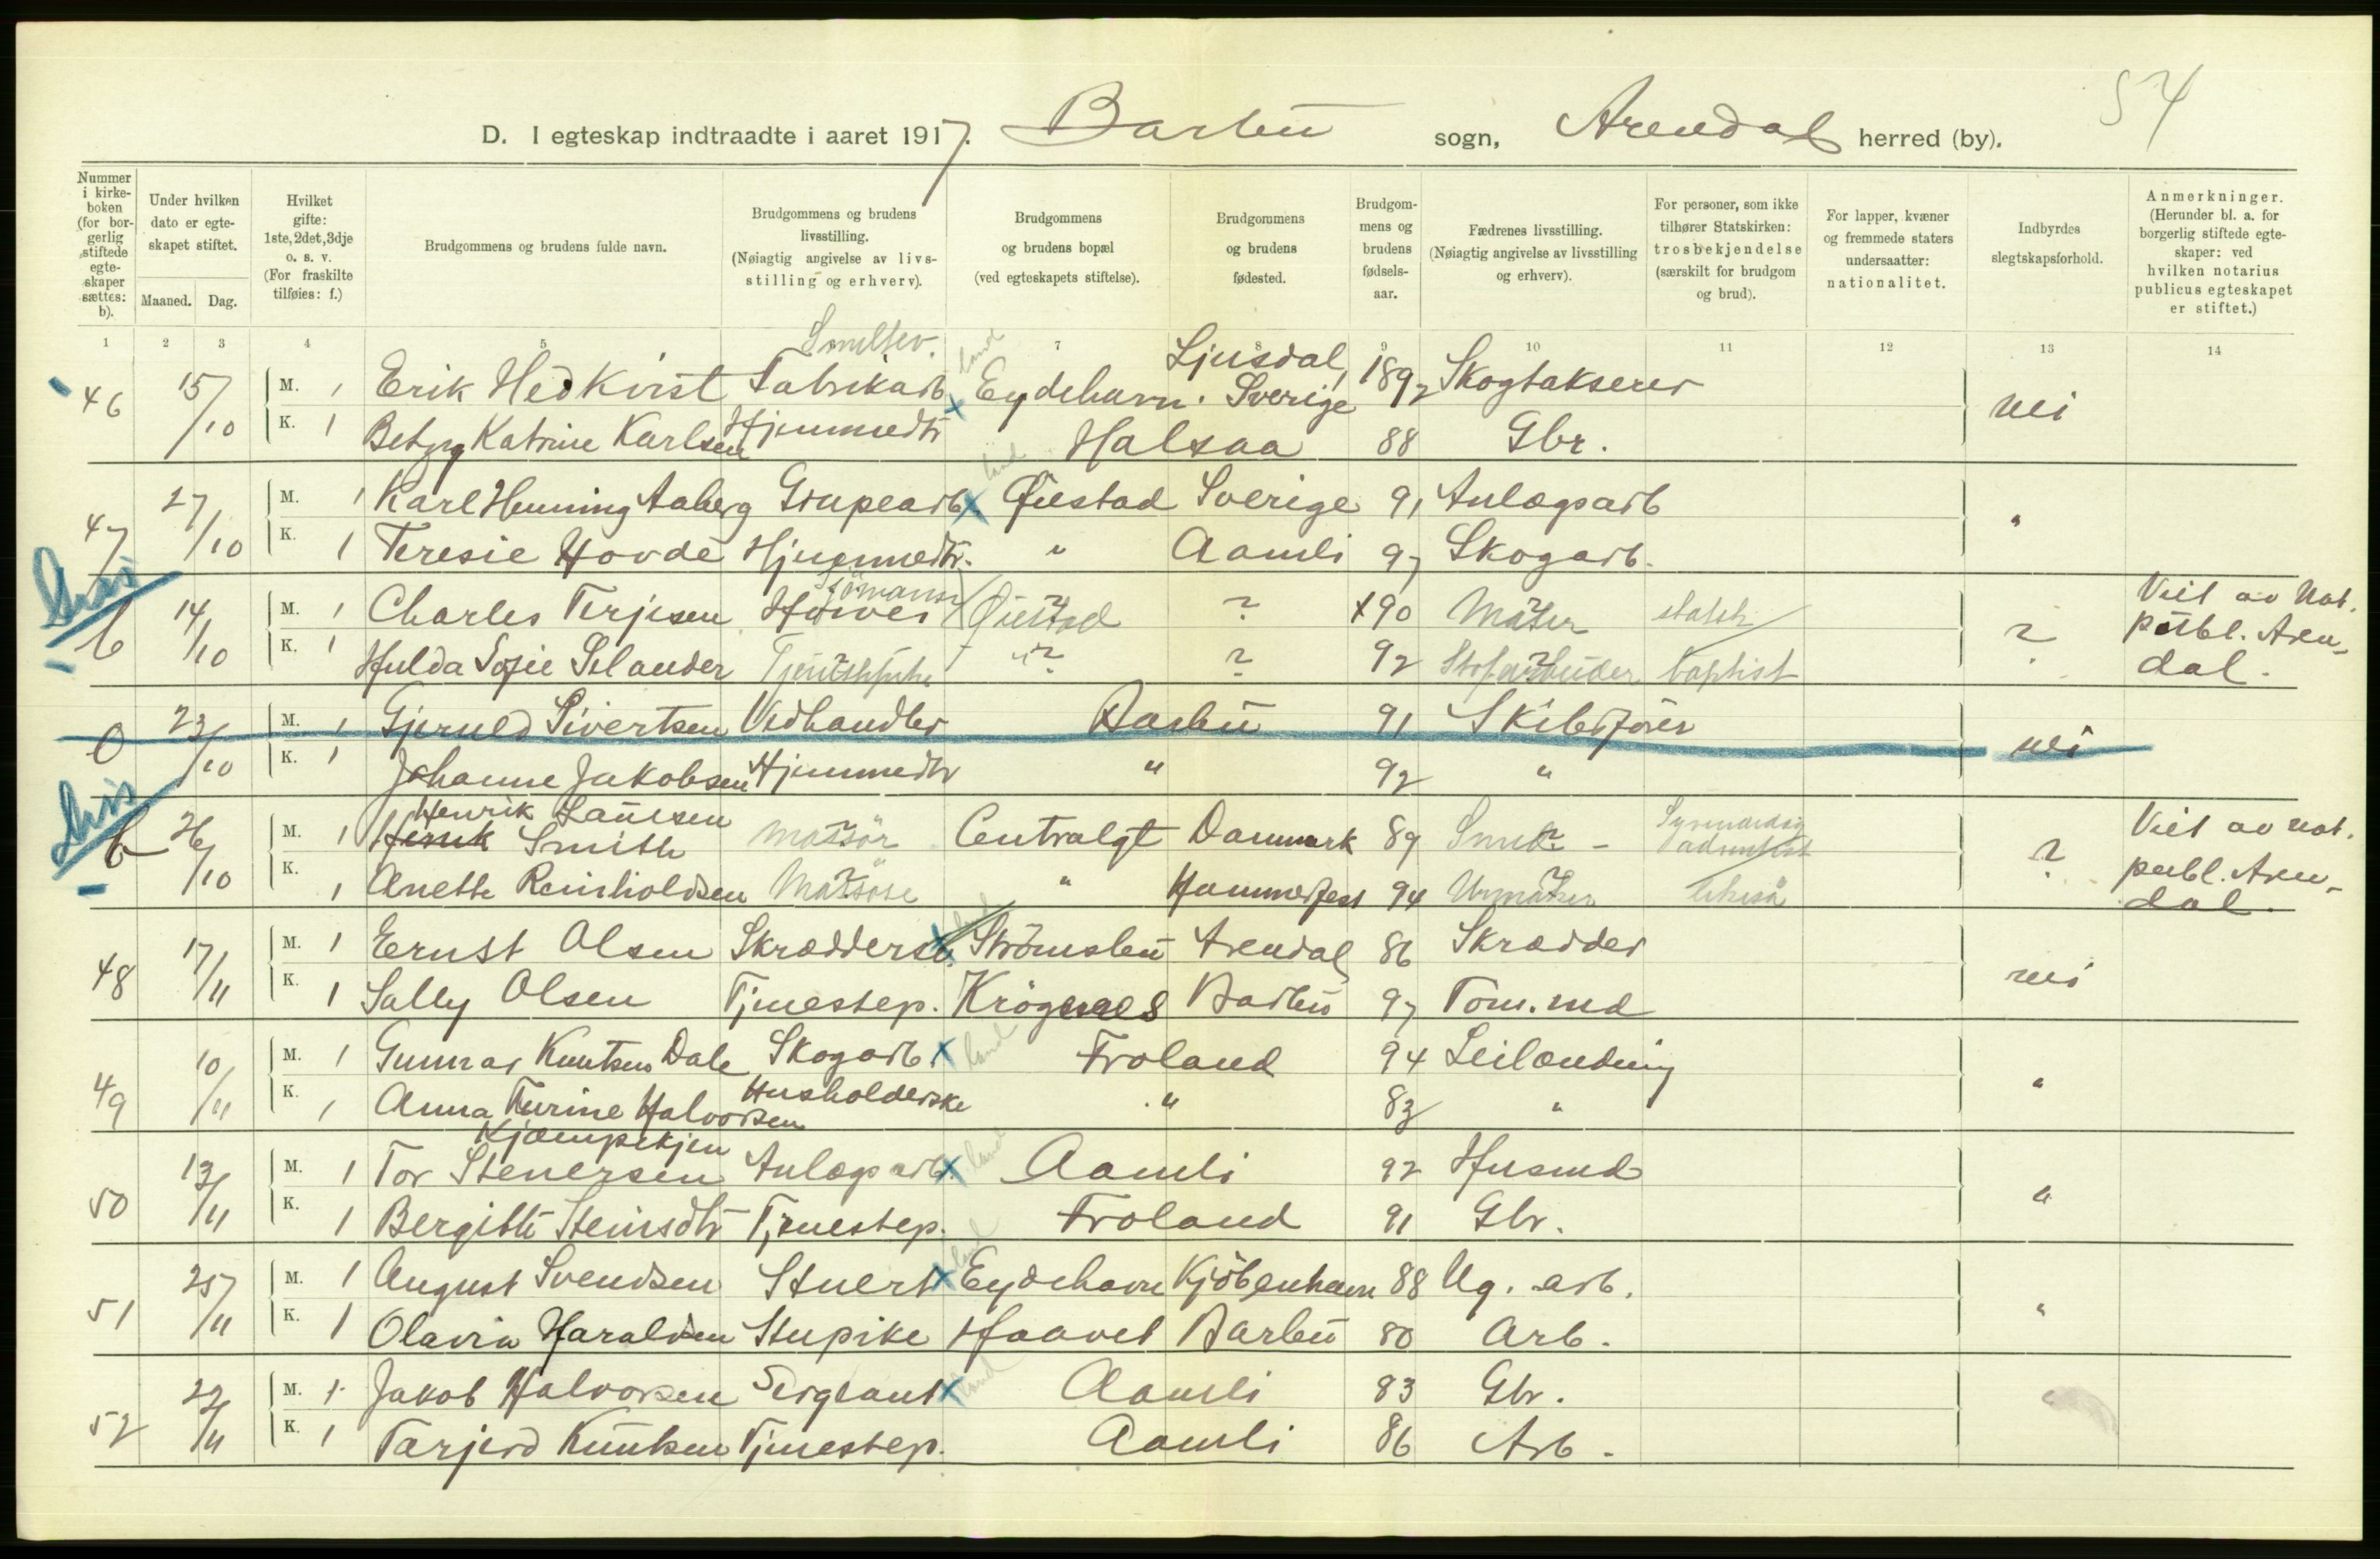 54
D. I egteskap indtraadte i aaret 1917. Barbu sogn, Arendal herred (by).
Nummer i kirkeboken (for borgerlig stiftede egteskaper sættes: b).
Under hvilken dato er egteskapet stiftet.
Maaned. Dag.
Hvilket gifte: 1ste, 2det, 3dje o. s. v. (For fraskilte tilføies: f.)
Brudgommens og brudens fulde navn.
Brudgommens og brudens livsstilling. (Nøiagtig angivelse av livsstilling og erhverv).
Brudgommens og brudens bopæl (ved egteskapets stiftelse).
Brudgommens og brudens fødested.
Brudgommens og brudens fødselsaar.
Fædrenes livsstilling. (Nøiagtig angivelse av livsstilling og erhverv).
For personer, som ikke tilhører Statskirken: trosbekjendelse (særskilt for brudgom og brud).
For lapper, kvæner og fremmede staters undersaatter: nationalitet.
Indbyrdes slegtskapsforhold.
Anmerkninger. (Herunder bl. a. for borgerlig stiftede egteskaper: ved hvilken notarius publicus egteskapet er stiftet.)
1 2 3 4 5 7 8 9 10 11 12 13 14
Smeltev. land
46 15/10 M. 1 Erik Hedkvist Fabrikarb x Eydehavn. Ljusdal, Sverige 1892 Skogtakserer nei
K. 1 Betzy Katrine Karlsen Hjemmedtr Halsaa 88 Gbr.
land
47 27/10 M. 1 Karl Henning Aaberg Grupearb x Øiestad Sverige 91 Anlægsarb "
K. 1 Teresie Hovde Hjemmedtr. " Aamli 97 Skogarb.
Sjømann
b 14/10 M. 1 Charles Terjesen Øiestad ? x90 ? statsk ? Viet av Not. publ. Arendal.
K. 1 Hulda Sofie Selander Tjenestepike "? ? 92 baptist
0 23/10 M. 1 Gjeruld Sivertsen Vedhandler Barbu 91 Skibsfører nei
K. 1 Johanne Jakobsen Hjemmedtr " 92 "
b 26/10 M. 1 Henrik Laursen Henrik Smith Massør Centralgt Danmark 89 Smed - Syvendedags adventist ? Viet av not. publ. Arendal.
K. 1 Anette Reinholdsen Massøse " Hammerfest 94 Urmaker
48 17/11 M. 1 Ernst Olsen Skræddersv. x Strømsbu Arendal 86 Skrædder nei
K. 1 Sally Olsen Tjenestep. Krøgenes Barbu 97 Tom.md
49 10/11 M. 1 Gunnar Knutsen Dale Skogarb. x land Froland 94 Leilænding "
K. 1 Anna Turine Halvorsen Husholderske " 82 "
Kjæmpekjen
50 13/11 M. 1 Tor Stenersen Anlægsarb. x land Aamli 92 Husmd "
K. 1 Bergitte Steinsdtr Tjenestep. Froland 91 Gbr.
land
51 25/11 M. 1 August Svendsen Stuert x Eydehavn Kjøbenhavn 88 Ug. arb. "
K. 1 Olavia Haraldsen Stupike Haavet Barbu 80 Arb.
52 22/11 M. 1 Jakob Halvorsen Sergeant x land Aamli 83 Gbr.
K. 1 Tarjerd Knutsen Tjenestep. Aamli 86 Arb.